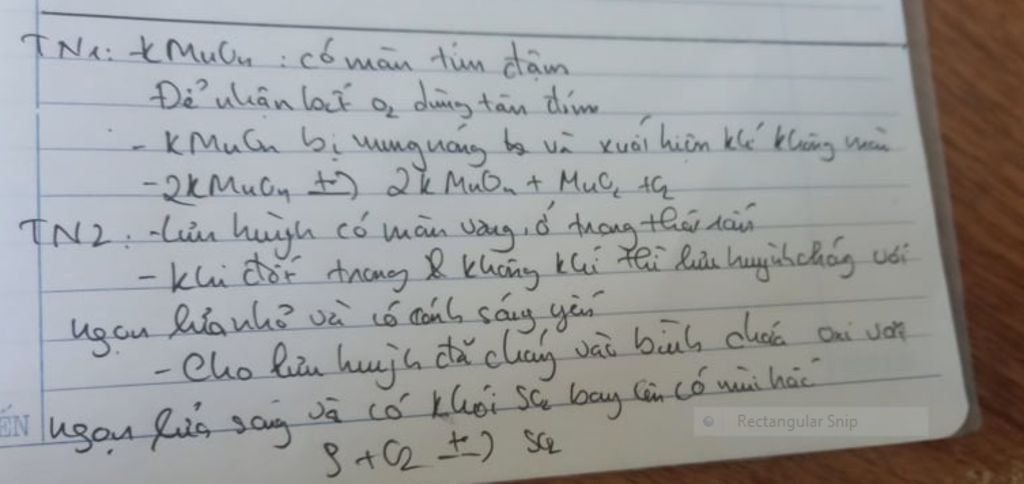 TN1: KMnO4 : có màu tím đậm
Để nhận biết O2 dùng tàn đóm
- KMnO4 bị nung nóng và xuất hiện khí không màu
- 2KMnO4 t°→ 2KMnO4 + MnO2 + O2
TN2: - Lưu huỳnh có màu vàng, ở trạng thái rắn
- Khi đốt trong không khí thì lưu huỳnh cháy với
ngọn lửa nhỏ và có ánh sáng yếu
- Cho lưu huỳnh đã cháy vào bình chứa oxi với
ngọn lửa sáng và có khói SO2 bay lên có mùi hắc
S + O2 t°→ SO2
ẾN
Rectangular Snip